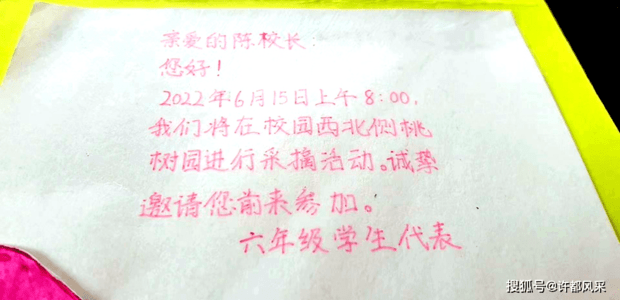 亲爱的陈校长：
您好！
2022年6月15日上午8:00，
我们将在校园西北侧桃
树园进行采摘活动。诚挚
邀请您前来参加。
六年级学生代表
搜狐号@许都风采